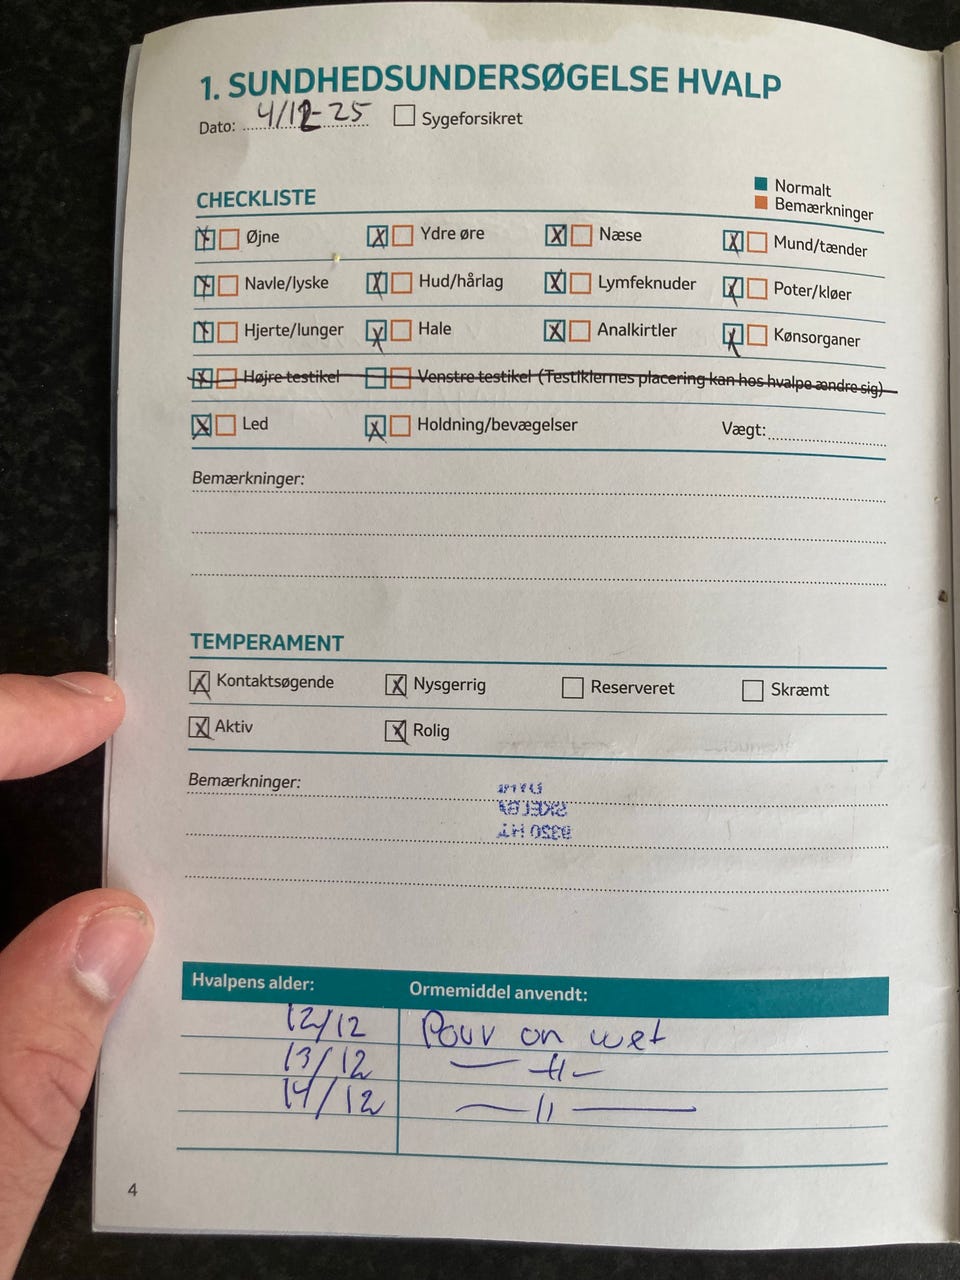 1. SUNDHEDSUNDERSØGELSE HVALP
Dato: 4/12-25 Sygeforsikret
Normalt
Bemærkninger
CHECKLISTE
Øjne Ydre øre Næse Mund/tænder
Navle/lyske Hud/hårlag Lymfeknuder Poter/kløer
Hjerte/lunger Hale Analkirtler Kønsorganer
Højre testikel Venstre testikel (Testiklernes placering kan hos hvalpe ændre sig)
Led Holdning/bevægelser Vægt:
Bemærkninger:
TEMPERAMENT
Kontaktsøgende Nysgerrig Reserveret Skræmt
Aktiv Rolig
Bemærkninger:
Hvalpens alder: Ormemiddel anvendt:
12/12 Pour on wet
13/12 — 11 —
14/12 — 11 —
4